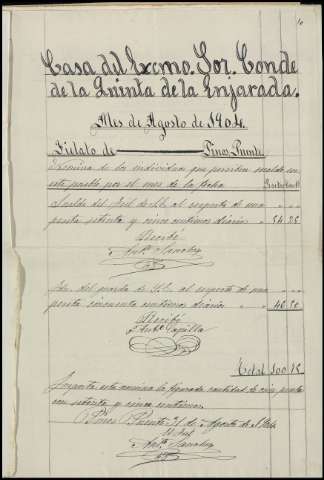 Casa del Excmo. Sor. Conde
de la Quinta de la Enjarada.
Mes de Agosto de 1904.
Fielato de Pinos Puente.
Nómina de los individuos que prestan servicio en
este puesto por el mes de la fecha
Sueldo del Fiel de Id. al respecto de una
peseta setenta y cinco céntimos diarios " 54.25
Recibí
Antº Sanchez
Id. del guarda de Id. al respecto de una
peseta cincuenta céntimos diarios " 46.50
Recibí
Antº Capilla
Total 100.75
Importa esta nómina la figurada cantidad de cien pesetas
con setenta y cinco céntimos
Pinos Puente 31 de Agosto de 1904
El Fiel
Antº Sanchez